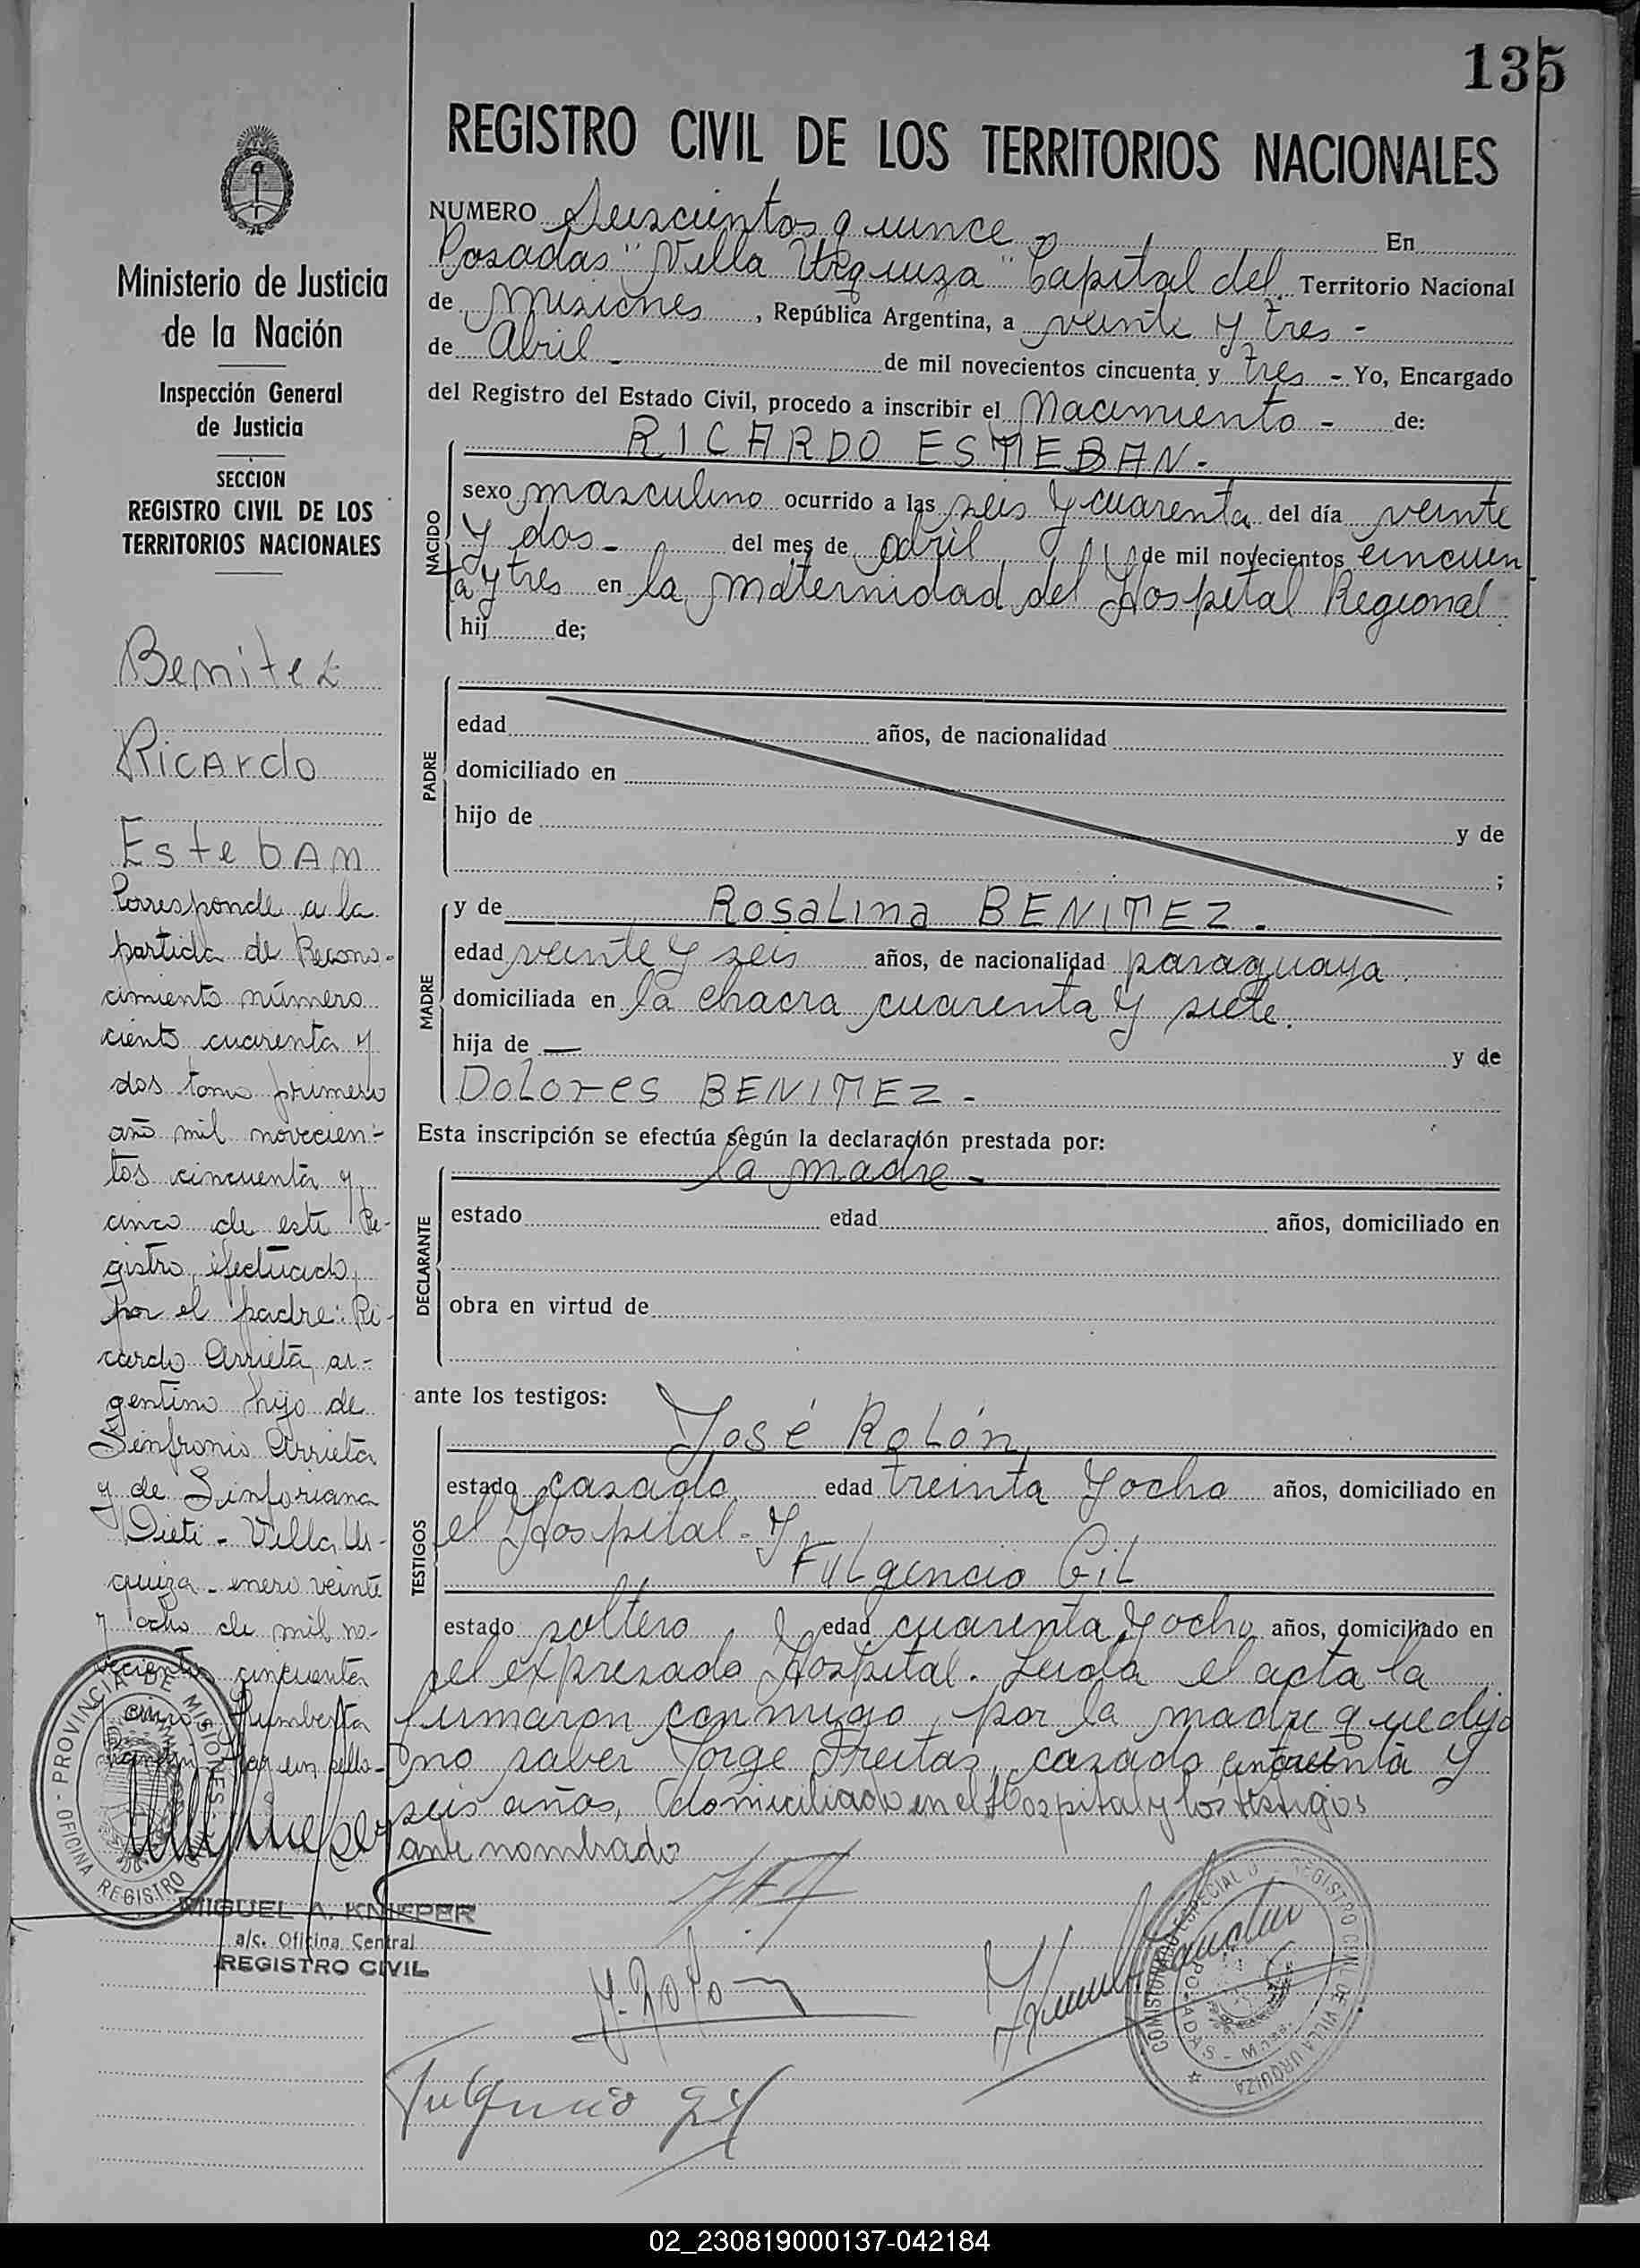 135
REGISTRO CIVIL DE LOS TERRITORIOS NACIONALES
Ministerio de Justicia
de la Nación
Inspección General
de Justicia
SECCION
REGISTRO CIVIL DE LOS
TERRITORIOS NACIONALES
Benitez
Ricardo
Esteban
Corresponde a la
partida de Recono-
cimiento número
ciento cuarenta y
dos tomo primero
año mil novecien-
tos cincuenta y
cinco de este Re-
gistro, efectuado
por el padre: Ri-
cardo Arrieta, ar-
gentino hijo de
Sinfronio Arrieta
y de Sinforiana
Villa Ur-
quiza - enero veinte
y ocho de mil no-
vecientos cincuenta
cinco Humberto
PROVINCIA DE MISIONES - OFICINA REGISTRO
MIGUEL A. KNIEPER
a/c. Oficina Central
REGISTRO CIVIL
NUMERO Seiscientos quince - En
Posadas "Villa Urquiza" Capital del Territorio Nacional
de Misiones, República Argentina, a veinte y tres -
de Abril - de mil novecientos cincuenta y tres - Yo, Encargado
del Registro del Estado Civil, procedo a inscribir el Nacimiento - de:
RICARDO ESTEBAN -
NACIDO
sexo masculino ocurrido a las seis y cuarenta del día veinte
y dos - del mes de abril de mil novecientos cincuen
ta y tres en la maternidad del Hospital Regional
hij de;
PADRE
edad años, de nacionalidad
domiciliado en
hijo de y de
;
MADRE
y de Rosalina BENITEZ -
edad veinte y seis años, de nacionalidad paraguaya
domiciliada en la chacra cuarenta y siete.
hija de — y de
Dolores BENITEZ -
Esta inscripción se efectúa según la declaración prestada por:
DECLARANTE
la madre -
estado edad años, domiciliado en
obra en virtud de
ante los testigos:
TESTIGOS
José Rolón
estado casado edad treinta y ocho años, domiciliado en
el Hospital - y
Fulgencio Gil
estado soltero, edad cuarenta y ocho años, domiciliado en
el expresado Hospital. Leida el acta la
firmaron conmigo, por la madre que dijo
no saber Jorge Freitas, casado, y
seis años, domiciliado en el Hospital y los testigos
ante nombrado
J. Rolón
Fulgencio Gil
COMISIONADO ESPECIAL REGISTRO CIVIL DE VILLA URQUIZA
POSADAS -
02_230819000137-042184